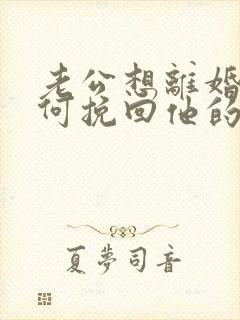 老公想離婚
何挽回他的
夏夢司音